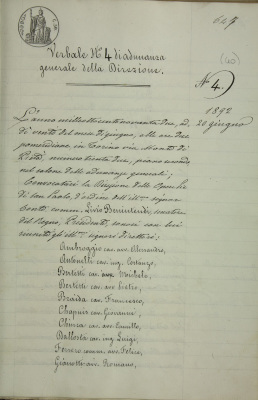 Verbale N° 4 di adunanza
generale della Direzione.
N° 4.
1892
20 giugno
L'anno milleottocentonovantadue, ad-
di venti del mese di giugno, alle ore due
pomeridiane, in Torino via Monte di
Pietà, numero trenta due, piano secondo
nel salone delle adunanze generali;
Convocatasi la Direzione delle Opere Pie
di San Paolo, d'ordine dell'ill.mo signor
Conte comm. Livio Benintendi, senatore
del Regno, Presidente, sonosi con lui
riuniti gli ill.mi signori direttori:
Ambroggio cav. avv. Alessandro,
Antonelli cav. ing. Costanzo,
Bertetti cav. avv. Michele,
Bertetti cav. avv. Pietro,
Braida cav. Francesco,
Chapuis cav. Giovanni,
Chiesa cav. avv. Camillo,
Ballosta cav. ing. Luigi,
Ferrero comm. avv. Felice,
Gianotti avv. Romano,